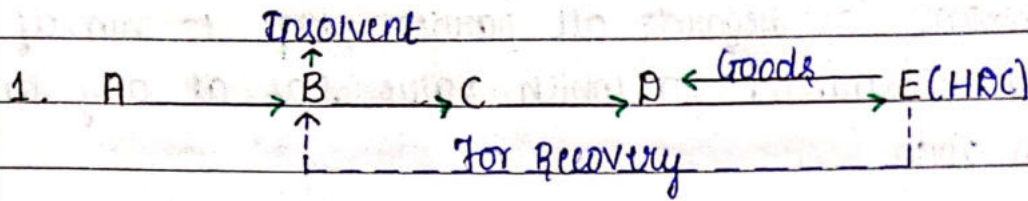 Insolvent
1. A B C D Goods E (HDC)
For Recovery